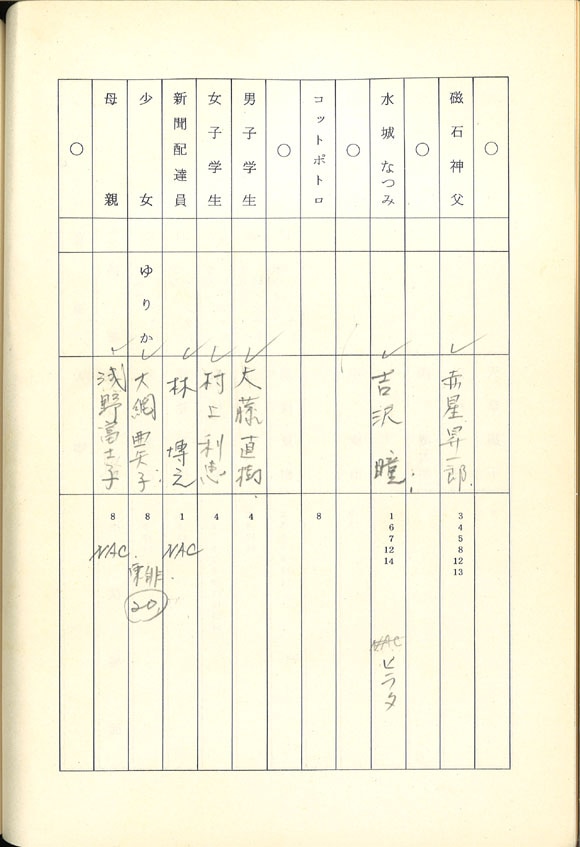 ○
磁石神父
赤星昇一郎.
3
4
5
8
12
13
○
水城なつみ
吉沢 瞳
1
6
7
12
14
NAC
ヒラタ
○
コットポトロ
8
○
男子学生
大藤直樹
4
女子学生
村上利恵
4
新聞配達員
林 博之
1
NAC
少女
ゆりか
大網亜矢子
8
東俳.
20
母親
浅野富士子
8
NAC.
○